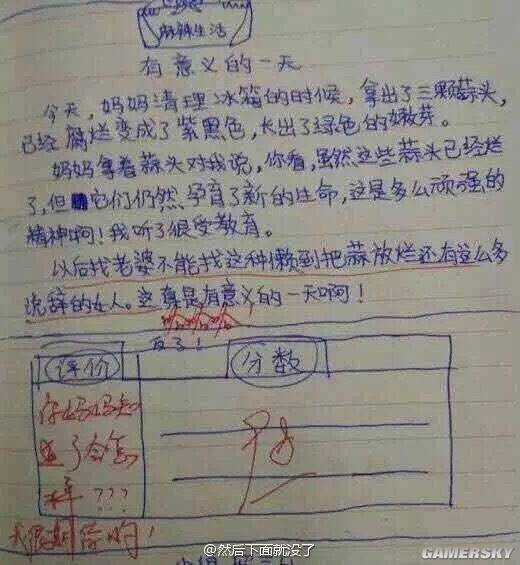 麻辣生活
有意义的一天
今天，妈妈清理冰箱的时候，拿出了三颗蒜头，
已经腐烂变成了紫黑色，长出了绿色的嫩芽。
妈妈拿着蒜头对我说，你看，虽然这些蒜头已经烂
了，但它们仍然孕育了新的生命，这是多么顽强的
精神啊！我听了很受教育。
以后找老婆不能找这种懒到把蒜放烂还有这么多
说辞的女人。这真是有意义的一天啊！
哈哈哈
反了！
评价 分数
你妈妈知
道了会怎
样???
我很期待哟！
@然后下面就没了
GAMERSKY